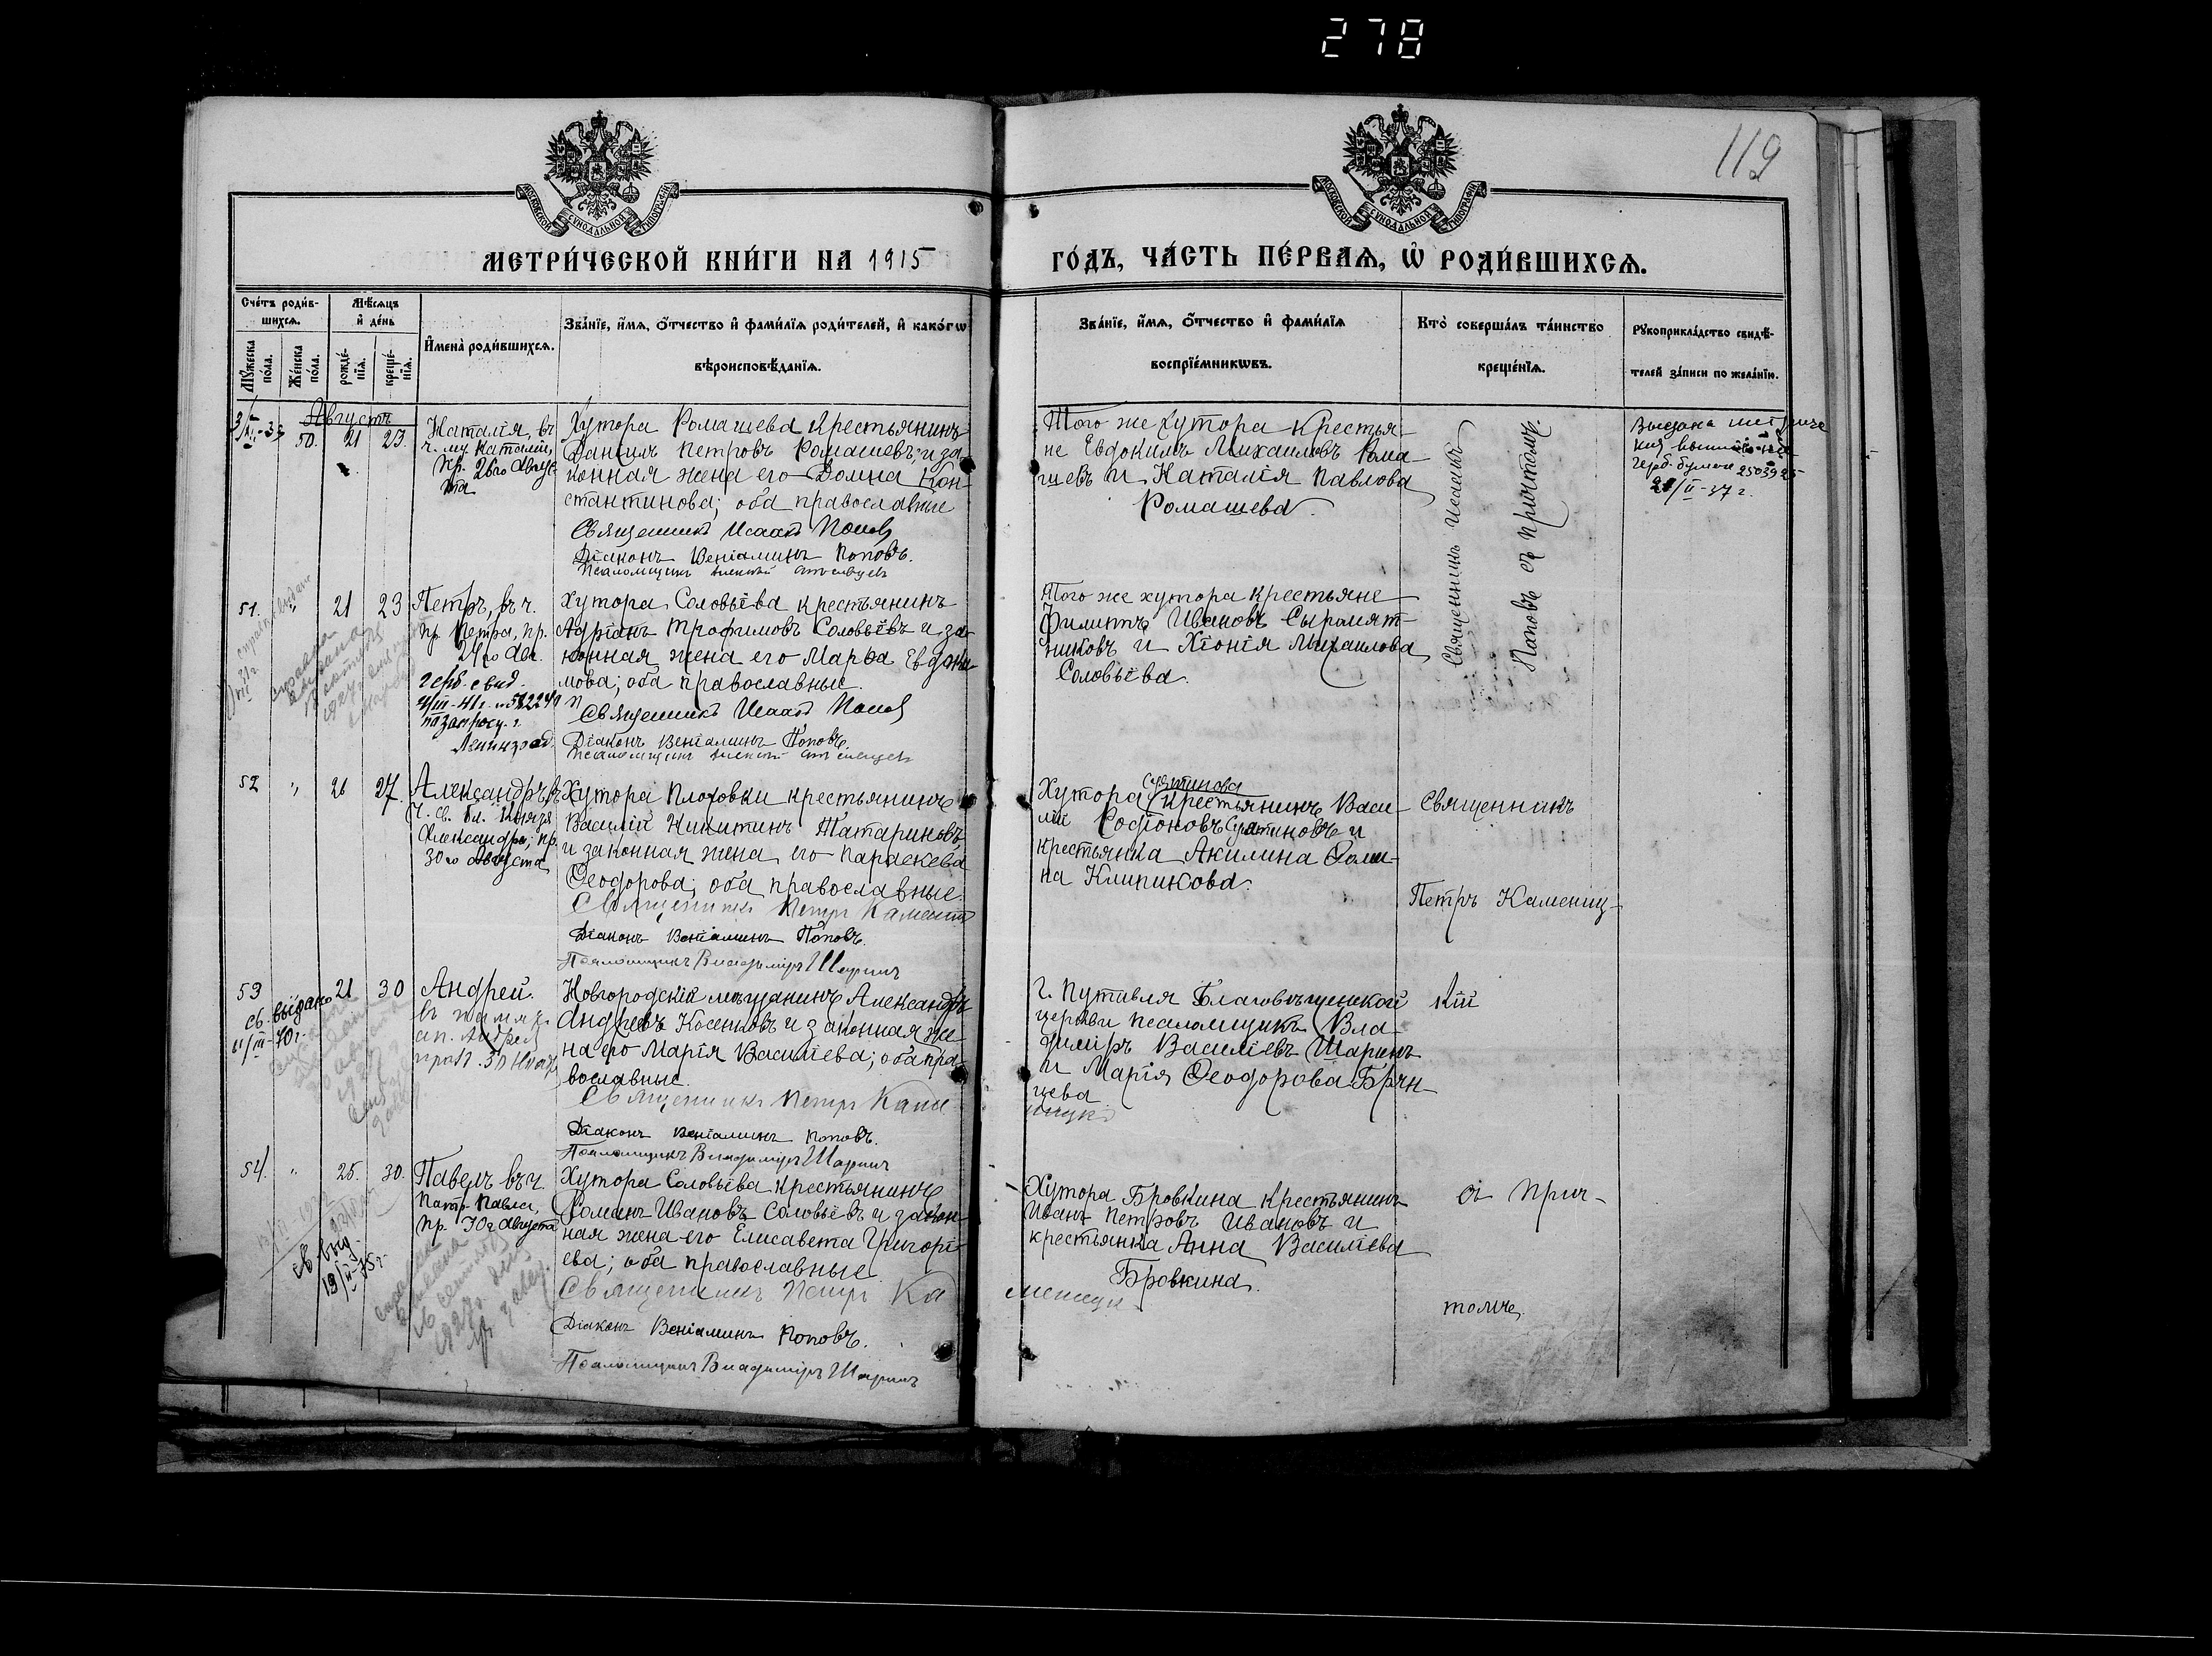 278
119
МОСКОВСКОЙ СѴНОДАЛЬНОЙ ТИПОГРАФІИ
МОСКОВСКОЙ СѴНОДАЛЬНОЙ ТИПОГРАФІИ
МЕТРИ́ЧЕСКОЙ КНИ́ГИ НА 1915
ГО́ДЪ, ЧА́СТЬ ПЕ́РВАѦ, Ѡ҆ РОДИ́ВШИХСѦ.
Сче́тъ роди́в-
шихсѧ.
Мѣ́сѧцъ
и҆ де́нь
Мꙋ́жеска по́ла.
Же́нска по́ла.
рожде́-
нїѧ.
креще́-
нїѧ.
И҆мена̀ роди́вшихсѧ.
Зва́нїе, и҆́мѧ, ѻ҆́тчество и҆ фами́лїѧ роди́телей, и҆ како́гѡ
вѣроисповѣ́данїѧ.
Зва́нїе, и҆́мѧ, ѻ҆́тчество и҆ фами́лїѧ
воспрїе́мникѡвъ.
Кто̀ соверша́лъ та́инство
креще́нїѧ.
Рꙋкоприкла́дство свидѣ́-
телей за́писи по жела́нїю.
Августъ
50. 21 23.
Наталія, въ
ч. му. Наталіи,
пр. 26го Авгус-
та
Хутора Ромашева крестьянинъ
Даніилъ Петровъ Ромашевъ и за-
конная жена его Домна Кон-
стантинова; оба православные
Священникъ Исаакъ Поповъ
Діаконъ Веніаминъ Поповъ.
Псаломщикъ
Того же хутора крестья-
не Евдокимъ Михаиловъ Рома-
шевъ и Наталія Павлова
Ромашева.
Священникъ Исаакъ
Поповъ съ причтомъ.
Выдана метриче
кия
герб. бумаге 2503925
21/II-37 г.
51. " 21 23
Петръ, въ ч.
пр. Петра, пр.
24го Авг.
герб. свид.
по запросу г.
Ленинград.
Хутора Соловьёва крестьянинъ
Адріанъ Трофимовъ Соловьёвъ и за-
конная жена его Марѳа Евдоки-
мова; оба православные.
Священникъ Исаакъ Поповъ
Діаконъ Веніаминъ Поповъ.
Псаломщикъ
Того же хутора крестьяне
Филиппъ Ивановъ Сыромят-
никовъ и Хіонія Михаилова
Соловьёва.
52 " 26 27.
Александръ, въ
ч. св. бл. Князя
Александра; пр.
30го Августа
Хутора Плоховки крестьянинъ
Василій Никитинъ Татариновъ
и законная жена его Параскева
Ѳеодорова; оба православные.
Священникъ Петръ
Діаконъ Веніаминъ Поповъ.
Псаломщикъ Владиміръ Шаринъ
Хутора крестьянинъ Васи-
лій Родіоновъ и
крестьянка Акилина Ѳоми-
на Клипикова.
Священникъ
Петръ Камениц-
кій
съ прич-
томъ.
53 21 30
св. выдано
Андрей.
въ память
ап. Андрея
Новгородскій мѣщанинъ Александръ
Андреевъ Косенковъ и законная же-
на его Марія Василіева; оба пра-
вославные.
Священникъ Петръ
Діаконъ Веніаминъ Поповъ.
Псаломщикъ Владиміръ Шаринъ
г. Путивля Благовѣщенской
церкви псаломщикъ Вла-
диміръ Василіевъ Шаринъ
и Марія Ѳеодорова Брян-
цева
54. " 25. 30.
Павелъ въ ч.
Патр. Павла,
пр. 30го Августа
св. выд.
Хутора Соловьёва крестьянинъ
Романъ Ивановъ Соловьёвъ и закон-
ная жена его Елисавета Григорі-
ева; оба православные
Священникъ Петръ Ка
Діаконъ Веніаминъ Поповъ.
Псаломщикъ Владиміръ Шаринъ
Хутора Бровкина крестьянинъ
Иванъ Петровъ Ивановъ и
крестьянка Анна Василіева
Бровкина.